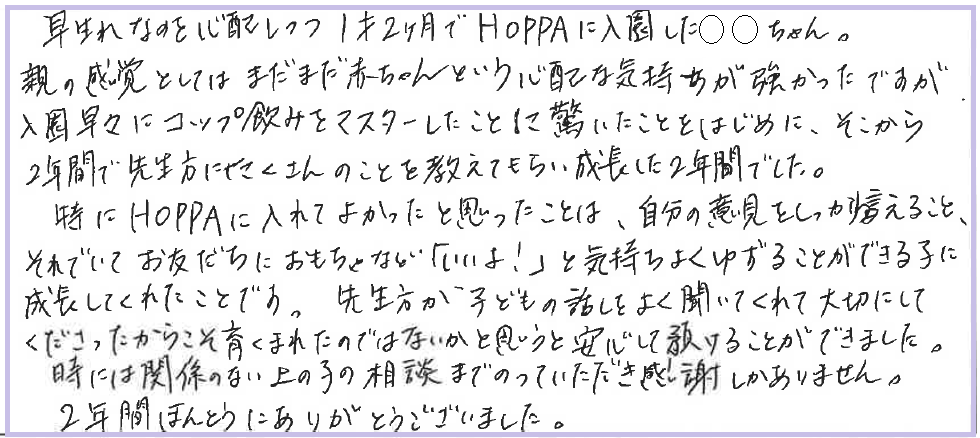 早生れなのを心配しつつ1才2ヶ月でHOPPAに入園した○○ちゃん。
親の感覚としてはまだまだ赤ちゃんという心配な気持ちが強かったですが
入園早々にコップ飲みをマスターしたことに驚いたことをはじめに、そこから
2年間で先生方にたくさんのことを教えてもらい成長した2年間でした。
特にHOPPAに入れてよかったと思ったことは、自分の意見をしっかり言えること、
それでいてお友だちにおもちゃなど「いいよ！」と気持ちよくゆずることができる子に
成長してくれたことです。先生方が子どもの話しをよく聞いてくれて大切にして
くださったからこそ育くまれたのではないかと思うと安心して預けることができました。
時には関係のない上の子の相談までのっていただき感謝しかありません。
2年間ほんとうにありがとうございました。